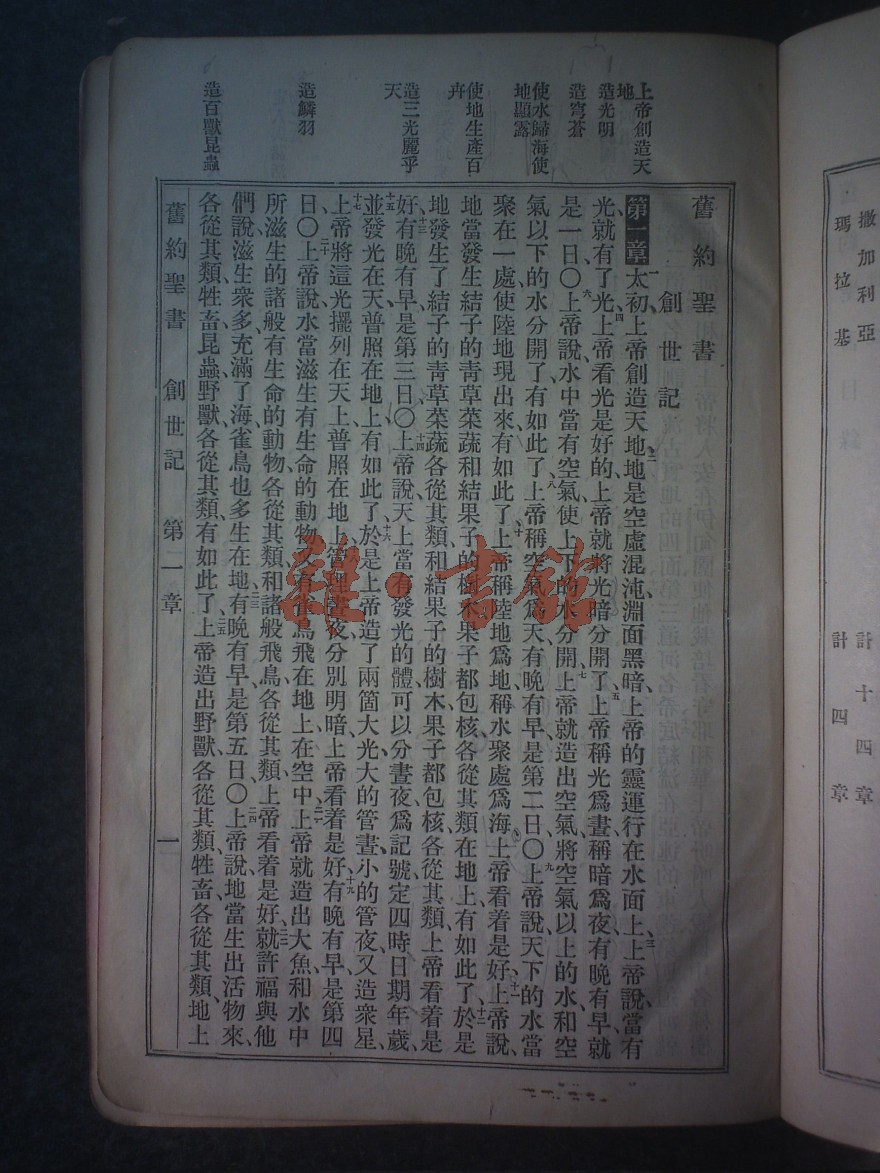 撒加利亞 計十四章
瑪拉基 計四章
上帝創造天地
造光明
造穹蒼
使水歸海使地顯露
使地生產百卉
造三光麗乎天
造鱗羽
造百獸昆蟲
舊約聖書
創世記
第一章 一太初上帝創造天地、二地是空虛混沌、淵面黑暗、上帝的靈運行在水面上、三上帝說當有
光、就有了光、四上帝看光是好的、上帝就將光暗分開了、五上帝稱光爲晝、稱暗爲夜、有晚有早、就
是一日〇六上帝說水中當有空氣、使上下的水分開、七上帝就造出空氣、將空氣以上的水和空
氣以下的水分開了、有如此了、八上帝稱空氣爲天、有晚有早、是第二日〇九上帝說天下的水當
聚在一處、使陸地現出來、有如此了、十上帝稱陸地爲地、稱水聚處爲海、上帝看着是好、十一上帝說、
地當發生結子的青草菜蔬和結果子的樹木、果子都包核、各從其類在地上、有如此了、十二於是
地發生了結子的青草菜蔬、各從其類、和結果子的樹木、果子都包核、各從其類、上帝看着是
好、十三有晚有早、是第三日〇十四上帝說天上當有發光的體、可以分晝夜、爲記號、定四時日期年歲、
十五並發光在天、普照在地上、有如此了、十六於是上帝造了兩箇大光、大的管晝、小的管夜、又造衆星、
十七上帝將這光擺列在天上、普照在地上、十八管理晝夜、分別明暗、上帝看着是好、十九有晚有早、是第四
日〇二十上帝說水當滋生有生命的動物、又有雀鳥飛在地上在空中、二一上帝就造出大魚和水中
所滋生的諸般有生命的動物、各從其類、和諸般飛鳥、各從其類、上帝看着是好、二二就許福與他
們說、滋生衆多、充滿了海、雀鳥也多生在地、二三有晚有早、是第五日〇二四上帝說地當生出活物來、
各從其類、牲畜昆蟲野獸、各從其類、有如此了、二五上帝造出野獸、各從其類、牲畜、各從其類、地上
舊約聖書 創世記 第一章 一
雜·書館